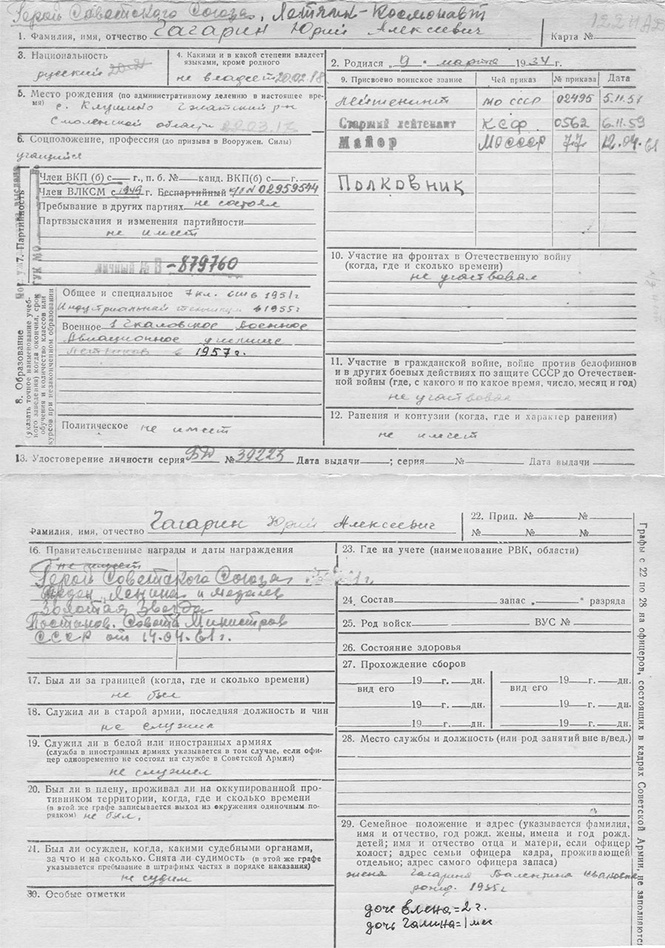 Герой Советского Союза, Летчик-Космонавт
1. Фамилия, имя, отчество Гагарин Юрий Алексеевич Карта №
3. Национальность
русский
4. Какими и в какой степени владеет
языками, кроме родного
не владеет
2. Родился 9 марта 1934 г.
9. Присвоено воинское звание Чей приказ № приказа Дата
лейтенант МО СССР 02495 5.11.57
Старший лейтенант КСФ 0562 6.11.59
Майор МО СССР 77 12.04.61
Полковник
5. Место рождения (по административному делению в настоящее время)
с. Клушино Гжатский р-н
Смоленской области
6. Соцположение, профессия (до призыва в Вооружен. Силы)
учащийся
7. Партийность
Член ВКП(б) с — г., п. б. № канд. ВКП(б) с — г.
Член ВЛКСМ с 1949 г. Беспартийный
Пребывание в других партиях не состоял
Партвзыскания и изменения партийности
не имеет
личный № В-879760
10. Участие на фронтах в Отечественную войну
(когда, где и сколько времени)
не участвовал
8. Образование
(указать точное наименование учебного заведения) когда окончил, срок обучения и количество классов или курсов при незаконченном образовании
Общее и специальное 7 кл. в 1951 г.
Индустриальный техникум в 1955 г.
Военное 1 Чкаловское военное
Авиационное училище
летчиков в 1957 г.
Политическое не имеет
11. Участие в гражданской войне, войне против белофиннов
и в других боевых действиях по защите СССР до Отечественной
войны (где, с какого и по какое время, число, месяц и год)
не участвовал
12. Ранения и контузии (когда, где и характер ранения)
не имеет
13. Удостоверение личности серия № 39223 Дата выдачи — ; серия — № — Дата выдачи —
Фамилия, имя, отчество Гагарин Юрий Алексеевич
22. Прип. № №
№ № №
16. Правительственные награды и даты награждения
не имеет
Герой Советского Союза
Орден Ленина и медаль
Золотая Звезда
Постанов. Совета Министров
СССР от 14.04.61 г.
17. Был ли за границей (когда, где и сколько времени)
не был
18. Служил ли в старой армии, последняя должность и чин
не служил
19. Служил ли в белой или иностранных армиях
(служба в иностранных армиях указывается в том случае, если офицер одновременно не состоял на службе в Советской Армии)
не служил
20. Был ли в плену, проживал ли на оккупированной противником
территории, когда, где и сколько времени
(в этой же графе записывается выход из окружения одиночным порядком) не был.
21. Был ли осужден, когда, какими судебными органами,
за что и на сколько. Снята ли судимость (в этой же графе
указывается пребывание в штрафных частях в порядке наказания)
не судим
30. Особые отметки
23. Где на учете (наименование РВК, области)
24. Состав запас разряда
25. Род войск ВУС №
26. Состояние здоровья
27. Прохождение сборов
19 — г. — дн. 19 — г. — дн.
вид его 19 — г. — дн. вид его 19 — г. — дн.
19 — г. — дн. 19 — г. — дн.
28. Место службы и должность (или род занятий вне в/вед.)
29. Семейное положение и адрес (указывается фамилия,
имя и отчество, год рожд. жены, имена и год рожд.
детей; имя и отчество отца и матери, если офицер
холост; адрес семьи офицера кадра, проживающей
отдельно; адрес самого офицера запаса)
жена Гагарина Валентина Ивановна
рожд. 1935 г.
дочь Елена = 2 г.
дочь Галина = 1 мес
Графы с 22 по 28 на офицеров, состоящих в кадрах Советской Армии, не заполняются